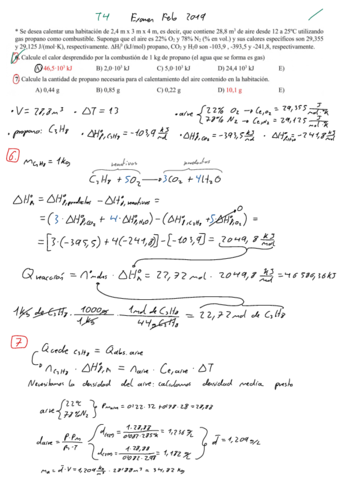 T4 Examen Feb 2019
* Se desea calentar una habitación de 2,4 m x 3 m x 4 m, es decir, que contiene 28,8 m³ de aire desde 12 a 25ºC utilizando
gas propano como combustible. Suponga que el aire es 22% O₂ y 78% N₂ (% en vol.) y sus calores específicos son 29,355
y 29,125 J/(mol·K), respectivamente. ΔHfº (kJ/mol) propano, CO₂ y H₂O son -103,9 , -393,5 y -241,8, respectivamente.
6. Calcule el calor desprendido por la combustión de 1 kg de propano (el agua que se forma es gas)
A) 46,5·10³ kJ B) 2,0·10³ kJ C) 5,0·10³ kJ D) 24,4·10³ kJ E)
7. Calcule la cantidad de propano necesaria para el calentamiento del aire contenido en la habitación.
A) 0,44 g B) 0,85 g C) 0,22 g D) 10,1 g E)
• V = 28,8 m³ • ΔT = 13 • aire { 22% O₂ → Ce,O₂ = 29,355 J/mol·K
78% N₂ → Ce,N₂ = 29,125 J/mol·K
• propano: C₃H₈ • ΔHº f,C₃H₈ = -103,9 kJ/mol • ΔHº f,CO₂ = -393,5 kJ/mol • ΔHº f,H₂O = -241,8 kJ/mol
6 m C₃H₈ = 1 kg
reactivos productos
C₃H₈ + 5O₂ → 3CO₂ + 4H₂O
ΔHºR = ΔHº f,productos - ΔHº f,reactivos =
= (3·ΔHº f,CO₂ + 4·ΔHº f,H₂O) - (ΔHº f,C₃H₈ + 5ΔHº f,O₂) = 0
= [3·(-393,5) + 4(-241,8)] - [-103,9] = 2049,8 kJ/mol
Q reacción = nº moles · ΔHºR = 22,72 mol · 2049,8 kJ/mol = 46586,36 kJ
1 kg de C₃H₈ · 1000g/1kg · 1 mol de C₃H₈/44g C₃H₈ = 22,72 mol de C₃H₈
7 Q cede C₃H₈ = Q abs. aire
n C₃H₈ · ΔHº R = n aire · Ce,aire · ΔT
Necesitamos la densidad del aire: calculamos densidad media puesto
aire { 22% 78% N₂ } Pm aire = 0'22·32 + 0'78·28 = 28,88
d aire = P·Pm/R·T { d 12ºC = 1·28,88/0'082·285 = 1,236 g/L
d 25ºC = 1·28,88/0'082·298 = 1,182 g/L } d̄ = 1,209 g/L
m = d·V = 1,209 kg/m³ · 28'8 m³ = 34,82 kg